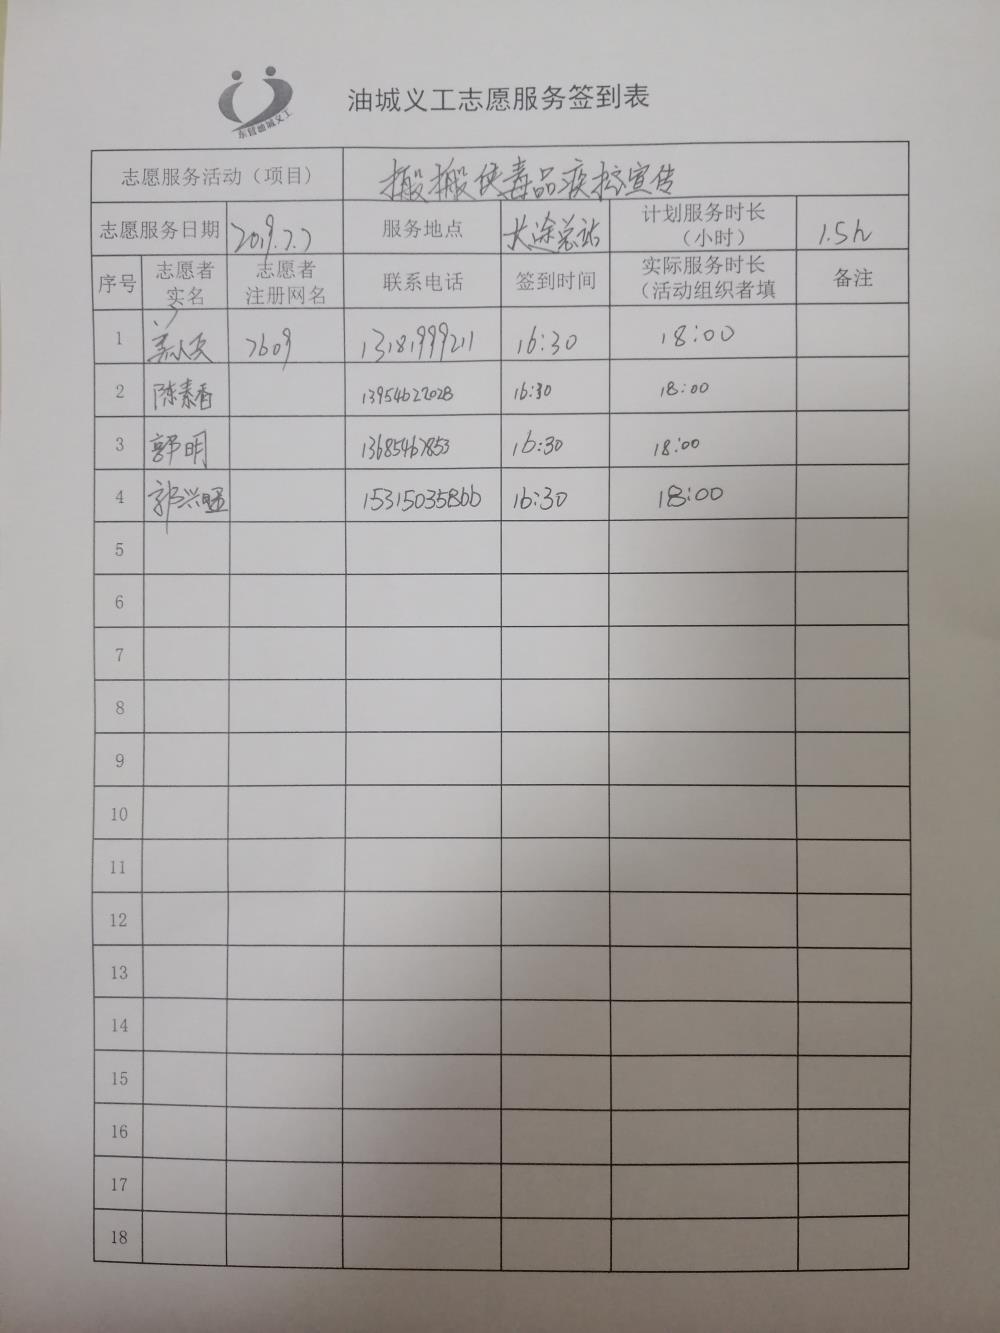 油城义工志愿服务签到表
东营油城义工
志愿服务活动（项目） 搬搬侠毒品疾控宣传
志愿服务日期 2019.7.7 服务地点 长途总站 计划服务时长（小时） 1.5h
序号 志愿者实名 志愿者注册网名 联系电话 签到时间 实际服务时长（活动组织者填 备注
1 7609 13181999211 16:30 18:00
2 陈素香 13954622028 16:30 18:00
3 郭明 13685467853 16:30 18:00
4 郭兴 15315035866 16:30 18:00
5
6
7
8
9
10
11
12
13
14
15
16
17
18